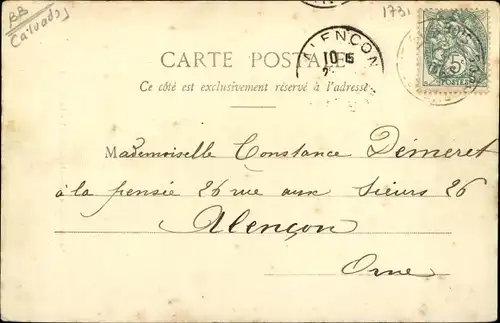 BB
Calvados
1731
ALENÇON
10
5
POSTES
CARTE POSTALE
Ce côté est exclusivement réservé à l'adresse
Mademoiselle Constance Démeret
à la pensée 26 rue aux Sieurs 26
Alençon
Orne